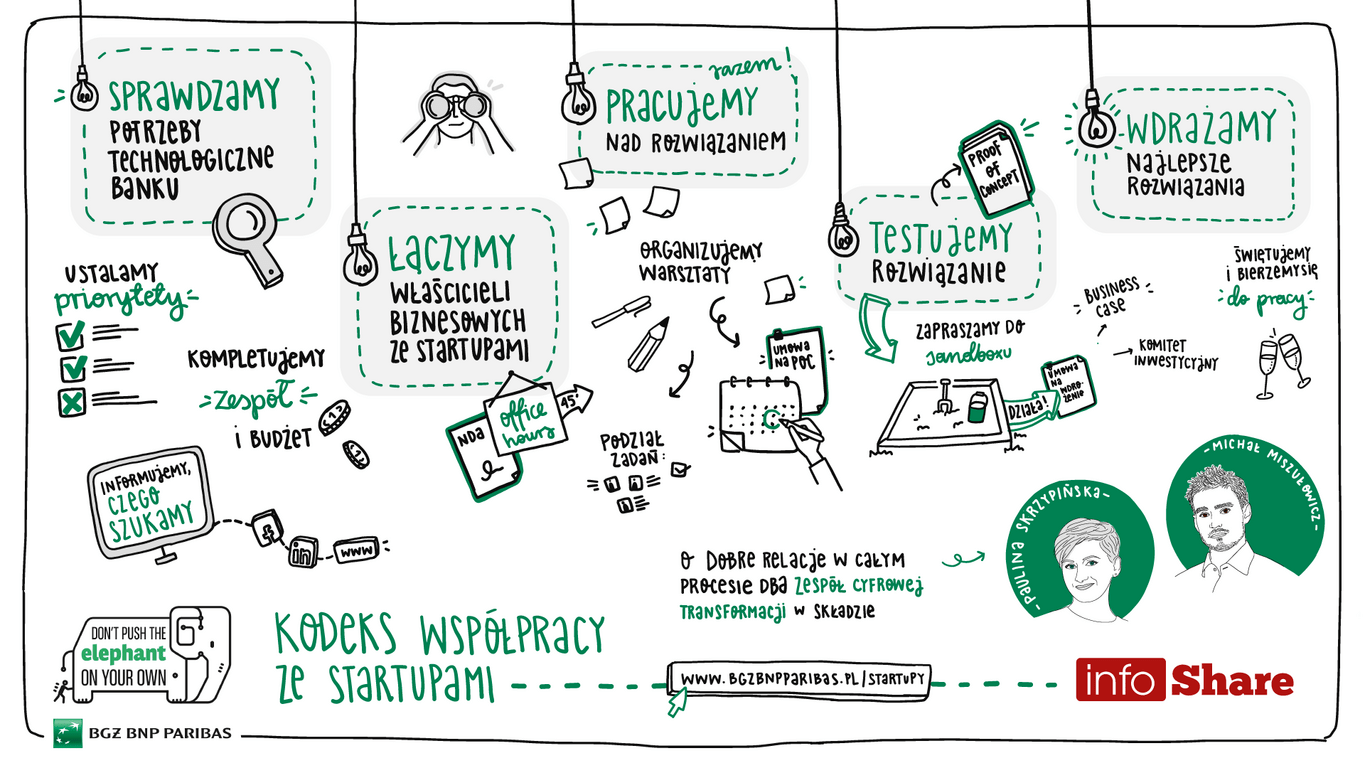 SPRAWDZAMY
POTRZEBY
TECHNOLOGICZNE
BANKU
USTALAMY
priorytety
KOMPLETUJEMY
zespół
i BUDŻET
INFORMUJEMY,
CZEGO
SZUKAMY
f
in
www
ŁĄCZYMY
WŁAŚCICIELI
BIZNESOWYCH
ZE STARTUPAMI
NDA
office
hours
45'
razem!
PRACUJEMY
NAD ROZWIĄZANIEM
ORGANIZUJEMY
WARSZTATY
UMOWA
NA POC
PODZIAŁ
ZADAŃ:
PROOF
OF
CONCEPT
TESTUJEMY
ROZWIĄZANIE
ZAPRASZAMY DO
sandboxu
DZIAŁA!
UMOWA
NA
WDRO-
ŻENIE
BUSINESS
CASE
KOMITET
INWESTYCYJNY
WDRAŻAMY
NAJLEPSZE
ROZWIĄZANIA
ŚWIĘTUJEMY
i BIERZEMY SIĘ
do pracy
O DOBRE RELACJE W CAŁYM
PROCESIE DBA ZESPÓŁ CYFROWEJ
TRANSFORMACJI W SKŁADZIE
-PAULINA SKRZYPIŃSKA-
-MICHAŁ MISZUŁOWICZ-
DON'T PUSH THE
elephant
ON YOUR OWN
KODEKS WSPÓŁPRACY
ZE STARTUPAMI
WWW.BGZBNPPARIBAS.PL/STARTUPY
info Share
BGŻ BNP PARIBAS